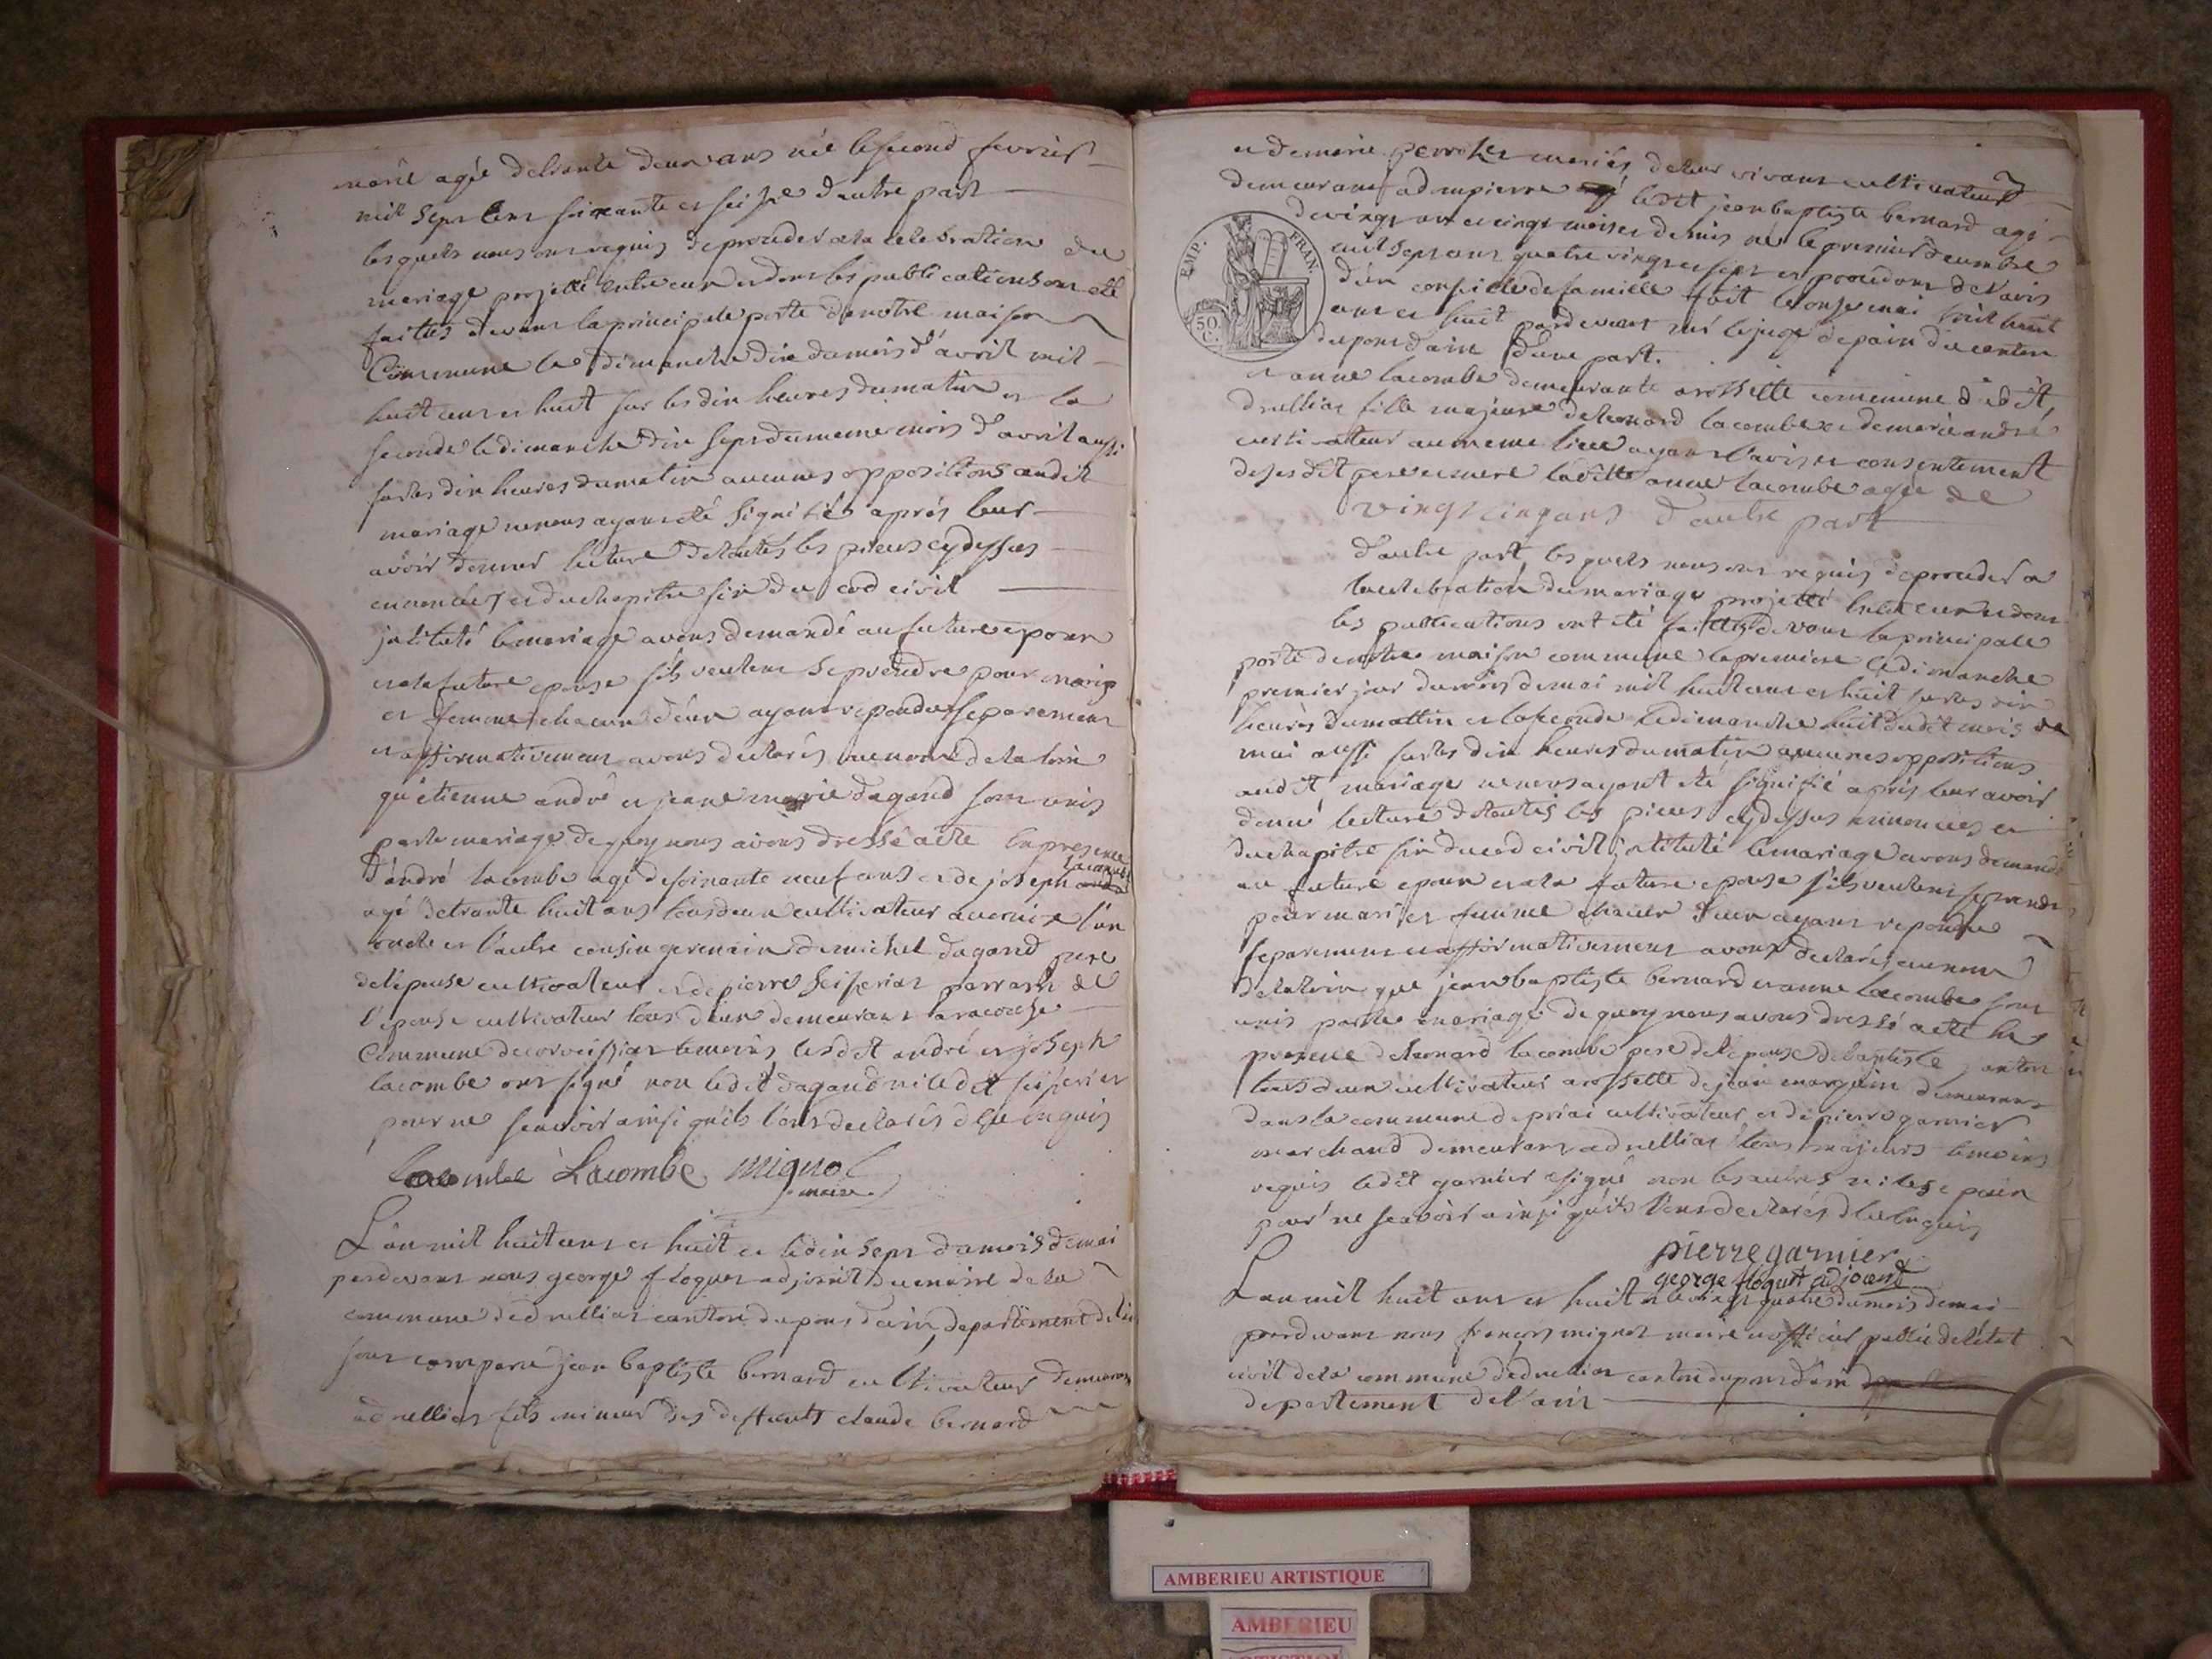 marié agée de trante deux ans née le second fevrier
mil sept cens soixante et seise d'autre part
lesquels nous ont requis de proceder a la celebration du
mariage projetté entre eux et dons les publications ont eté
faittes devans la principale porte de notre maison
Commune le dimanche dix du mois d'avril mil
huit cens et huit sur les dix heures du matin et la
seconde le dimanche dix sept du meme mois d'avril aussi
sur les dix heures du matin aucunes oppositions audit
mariage ne nous ayans eté signifiés après leur
avoir donner lecture de toutes les pieces cydessus
ennoncées et du chapitre six du cod civil
jntitulé le mariage avons demandé au future epoux
et a la future epouse s'ils veulens se prendre pour mari
et femme chacun d'eux ayans repondus separemens
et affirmativemens avons declarés au nom de la loix
qu'etienne andré et jeane marie dagand sons unis
par le mariage de quoy nous avons dressé acte en presence
d'andré lacombe agé de soixante neuf ans et de joseph lacombe
agé de trante huit ans tous deux cultivateur l'un
oncle et l'autre cousin germain de michel dagand pere
de l'epouse cultivateur et de pierre parrain de
l'epouse cultivateur tous deux demeurans
Commune de temoins lesdit andré et joseph
lacombe ons signé non ledit dagand ni ledit
pour ne scavoir ainsi qu'ils l'ons declarés de ce enquis
lacombe Lacombe mignol
maire
L'an mil huit cens et huit et le dix sept du mois de mai
pardevans nous george floquet adjoint du maire de la
commune de druillias canton du pons d'ain, departement de l'ain
sons comparu jean baptiste bernard cultivateur demeurans
a druillias fils mineur des deffunts claude bernard
et de marie mariés, de leur vivans cultivateur
demeurans a dmpierre ledit jean baptiste bernard agé
de vingt ans et cinqs mois et demis né le premier decembre
mil sept cens quatre vingt et sept et procedons de l'avis
d'un conseil de famille fait le onze mai mil huit
cens et huit pardevans mr le juge de paix du canton
du pons d'ain d'une part.
et anne lacombe demeurante a rossette commune dudit
druillias fille majeure de leonard lacombe et de marie andré
cultivateur au meme lieu ayans l'avis et consentement
de ses dit pere et mere laditte anne lacombe agée de
vingt cinq ans d'autre part
d'autre part, lesquels nous ons requis de proceder a
la celebration du mariage projetté entre eux et dons
les publications ont eté faittes devans la principale
porte de notre maison commune la premiere le dimanche
premier jour du mois de mai mil huit cens et huit sur les dix
heures du mattin et la seconde le dimanche huit dudit mois de
mai aussi sur les dix heures du matin aucunes oppositions
audit mariage ne nous ayant eté signifié après leur avoir
donné lecture de toutes les pieces cydessus ennoncées et
du chapitre six du cod civil jntitulé le mariage avons demandé
au future epoux et a la future epouse s'ils veulens se prendre
pour mari et femme chacun d'eux ayans repondu
separemens et affirmativemens avons declarés au nom
de la loix que jean baptiste bernard et anne lacombe sons
unis par le mariage de quoy nous avons dressé acte en
presence de leonard lacombe pere de l'epouse de baptiste
tous deux cultivateur a rossette de jean demeurans
dans la commune de priai cultivateur et de pierre garnier
marchand demeurans a druillias tous majeurs temoins
requis ledit garnier a signé non les autres ni les epoux
pour ne scavoir ainsi qu'ils l'ons declarés de ce enquis
pierre garnier
george floquet adjoient
L'an mil huit cens et huit et le vingt quatre du mois de mai
pardevans nous françois mignol maire et officier public de l'état
civil de la commune de druillias canton du pons d'ain
departement de l'ain
EMP. FRAN.
50
C.
AMBERIEU ARTISTIQUE
AMBERIEU
ARTISTIQUE